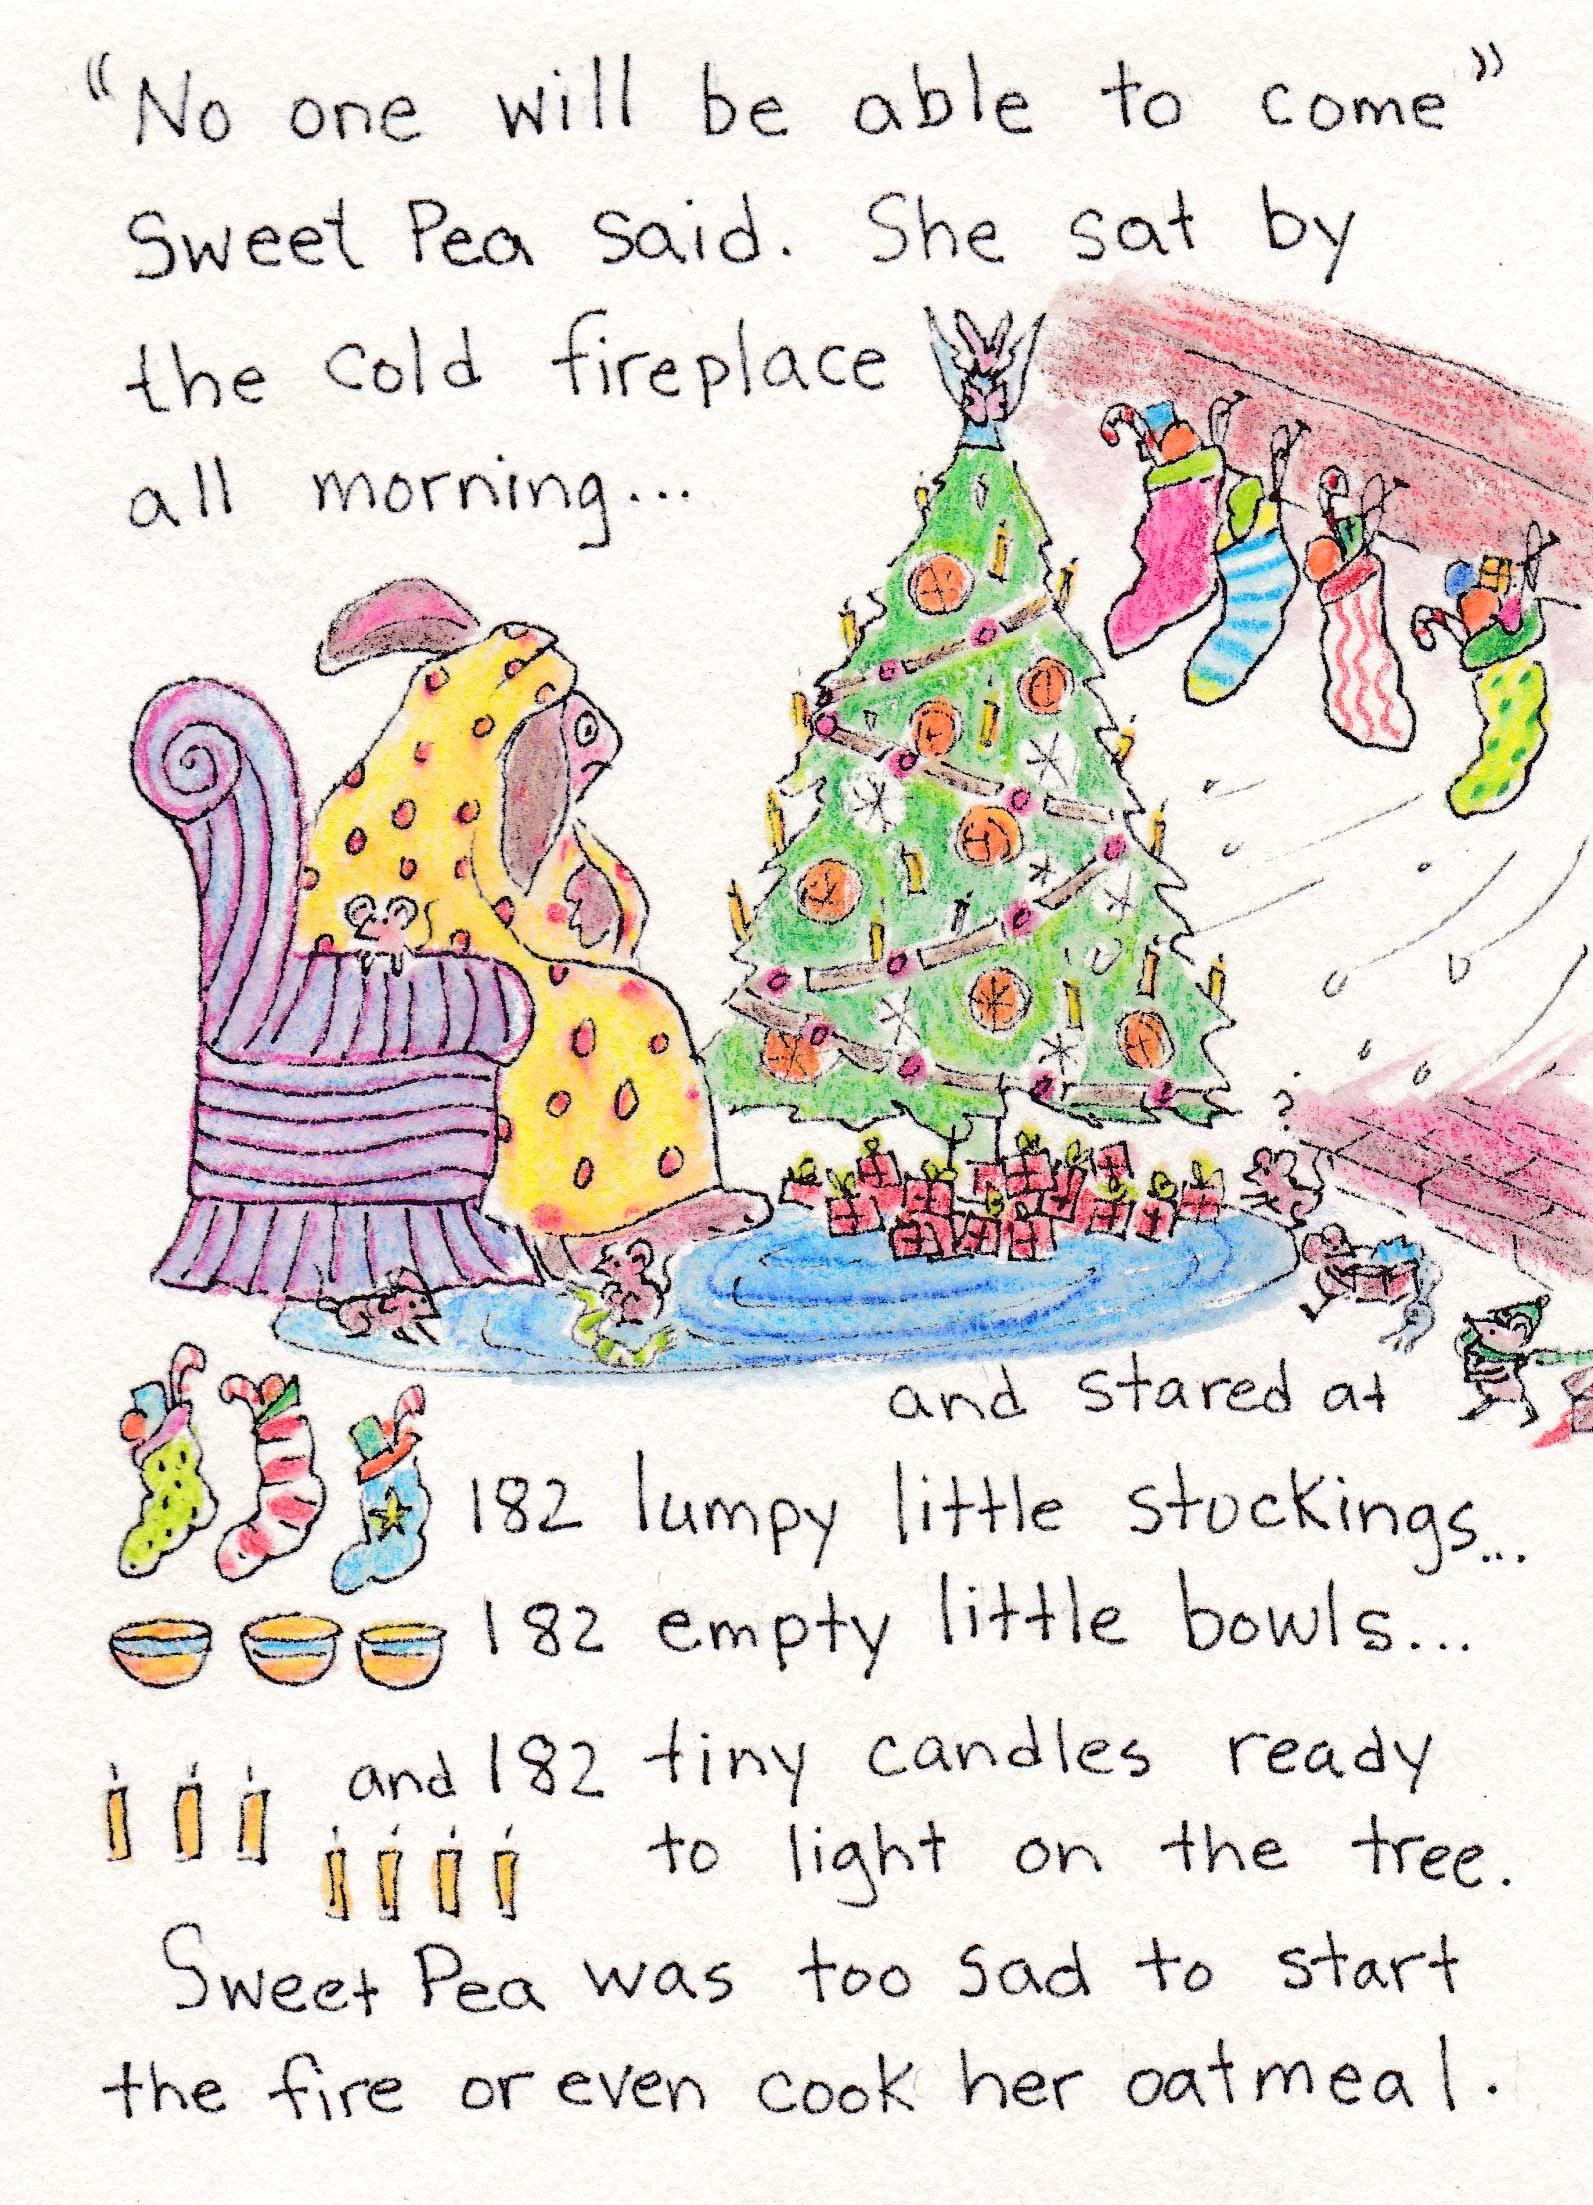 "No one will be able to come"
Sweet Pea said. She sat by
the cold fireplace
all morning...
?
and stared at
182 lumpy little stockings...
182 empty little bowls...
and 182 tiny candles ready
to light on the tree.
Sweet Pea was too sad to start
the fire or even cook her oatmeal.